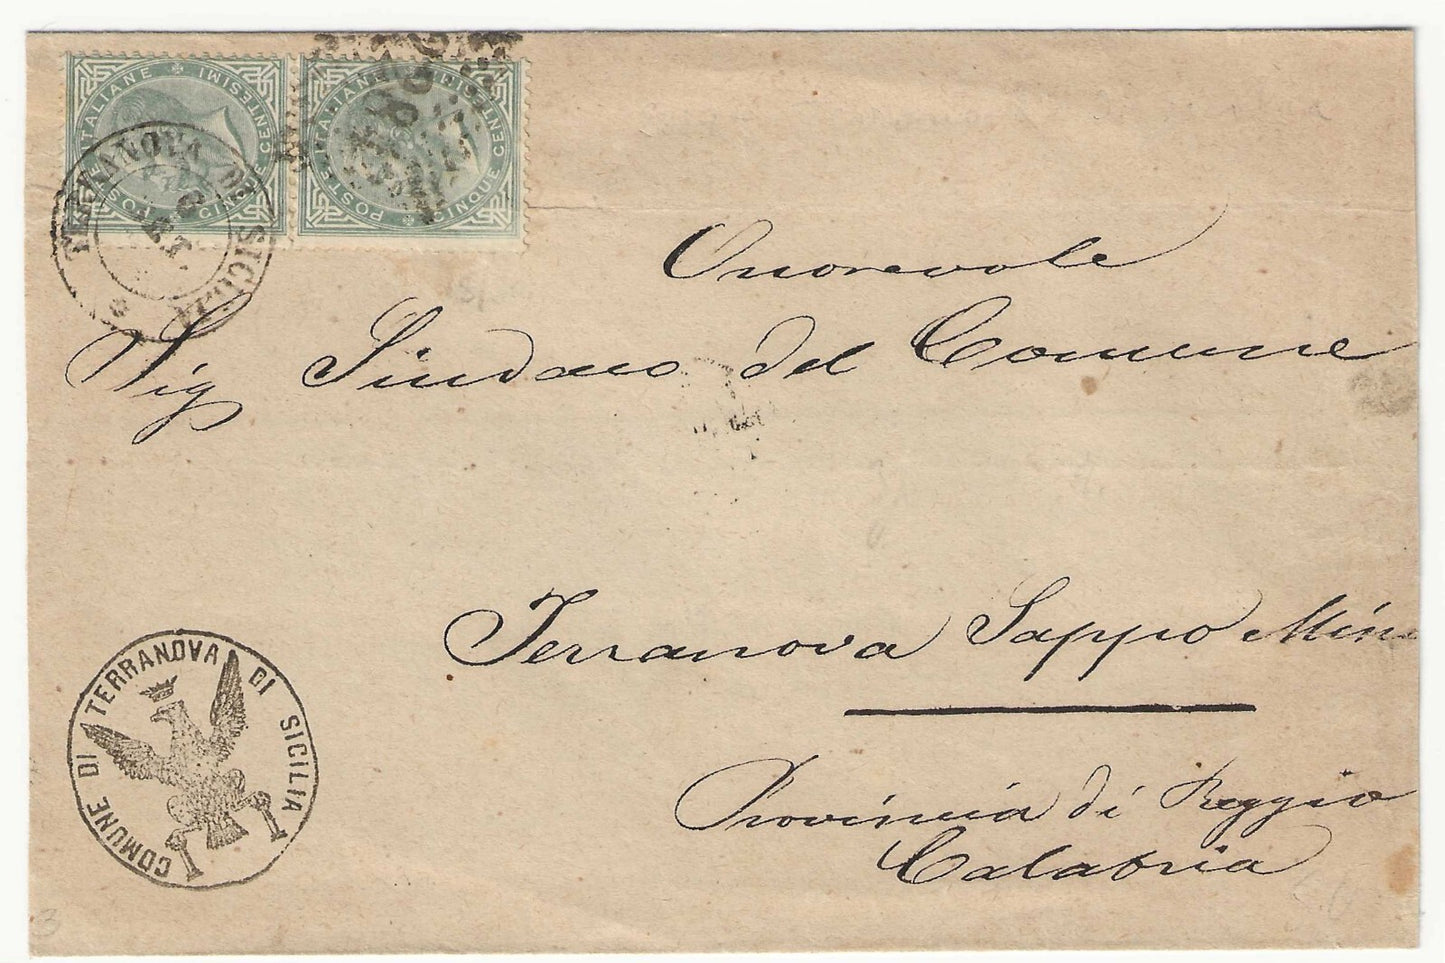 POSTE ITALIANE * CINQUE CENTESIMI
POSTE ITALIANE * CINQUE CENTESIMI
TERRANOVA DI SICILIA
Onorevole
Sig Sindaco del Comune
Terranova Sappo Min
Provincia di Reggio
Calabria
COMUNE DI TERRANOVA DI SICILIA